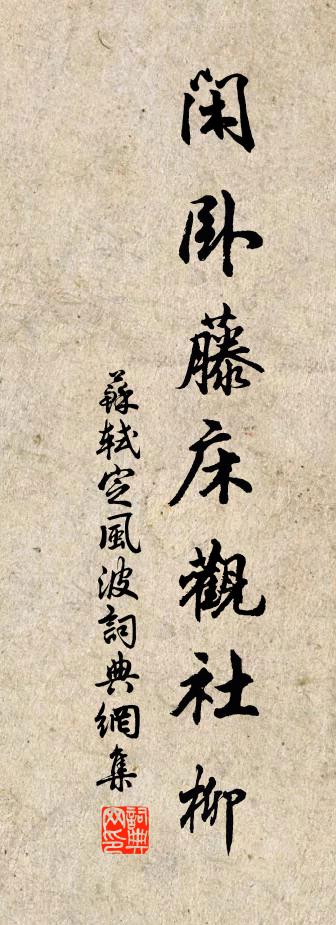 閑卧藤床觀社柳
蘇軾定風波詞典網集
詞典網印